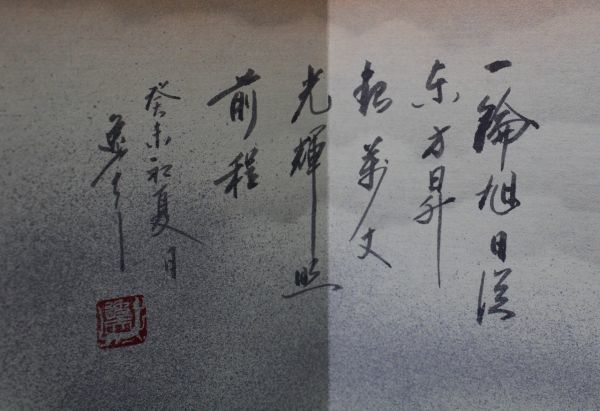 一輪旭日從
东方昇
起萬丈
光輝照
前程
癸未初夏月